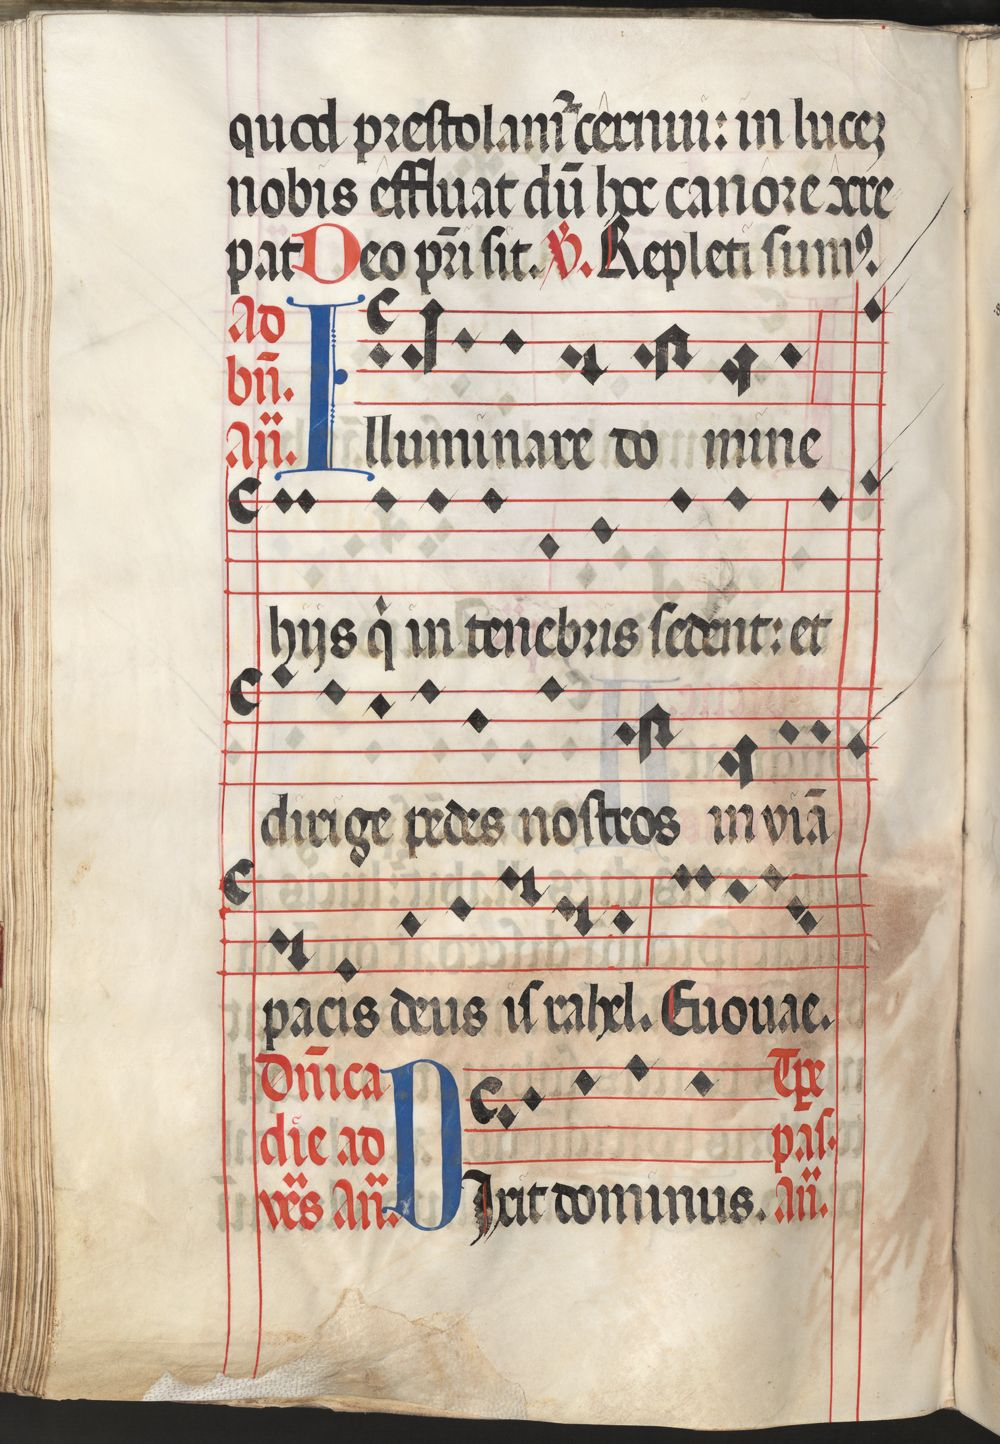 quod prestolamr̃ cernui: in lucez
nobis effluat dũ hec canore xre
pat Deo pr̃i sit. V̷. Repleti sumꝰ.
Ad
bñ.
Añ.
Illuminare do mine
hijs q̇ in tenebris sedent: et
dirige pedes nostros in viã
pacis deus israhel. Euouae.
Dñica
die ad
ves̃ Añ.
Dixit dominus.
Tp̱e
pas.
Añ.